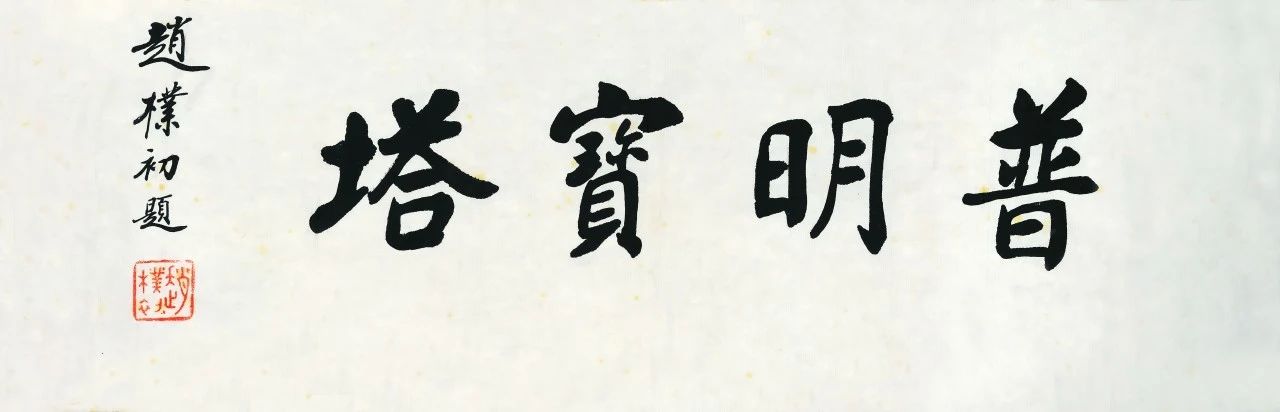 普明寶塔
趙樸初題